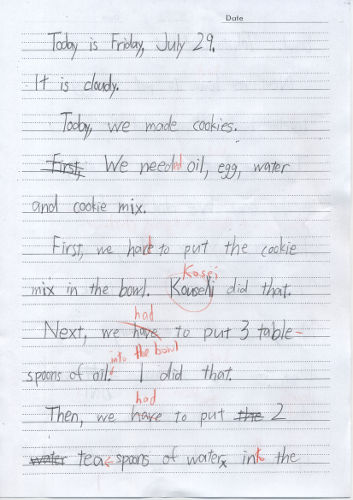 Date
Today is Friday, July 29.
It is cloudy.
Today, we made cookies.
First, We needed oil, egg, water
and cookie mix.
First, we had to put the cookie
Kosei
mix in the bowl. Kouseli did that.
had
Next, we have to put 3 table-
into the bowl
spoons of oil. I did that.
had
Then, we have to put the 2
water tea spoons of water, int the